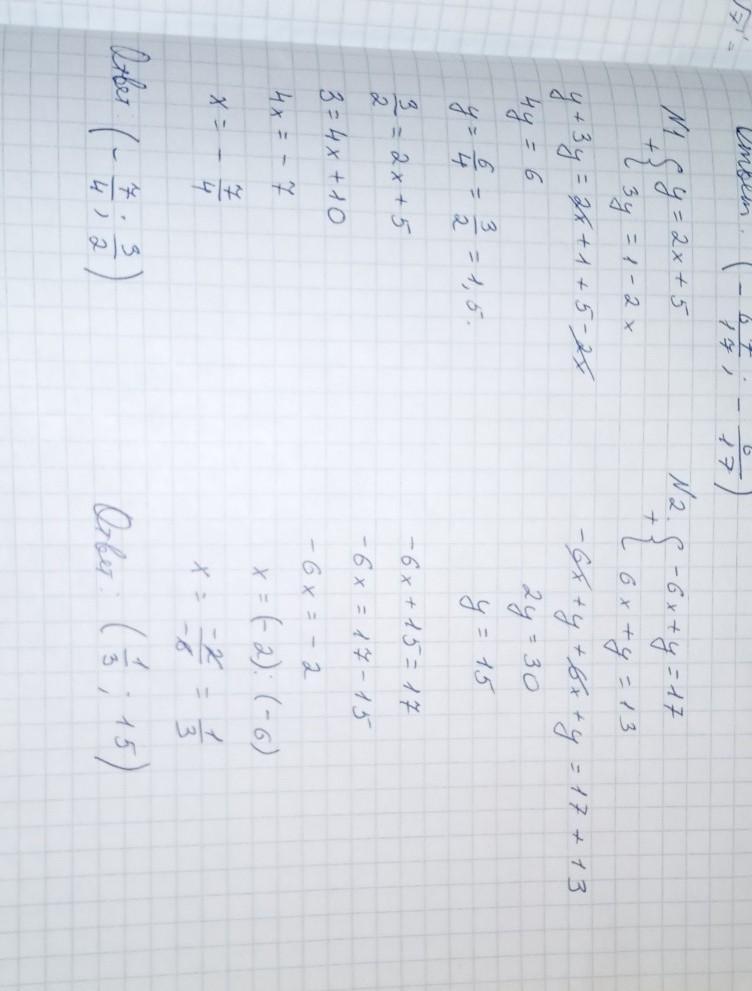 √7' =
Ответ. (- 6 7/17; - 6/17)
N1 + { y = 2x + 5
3y = 1 - 2x
y + 3y = 2x + 1 + 5 - 2x
4y = 6
y = 6/4 = 3/2 = 1,5.
3/2 = 2x + 5
3 = 4x + 10
4x = - 7
x = - 7/4
Ответ: (- 7/4; 3/2)
N2. + { -6x + y = 17
6x + y = 13
-6x + y + 6x + y = 17 + 13
2y = 30
y = 15
-6x + 15 = 17
-6x = 17 - 15
-6x = - 2
x = (-2) : (-6)
x = -2/-6 = 1/3
Ответ: (1/3; 15)